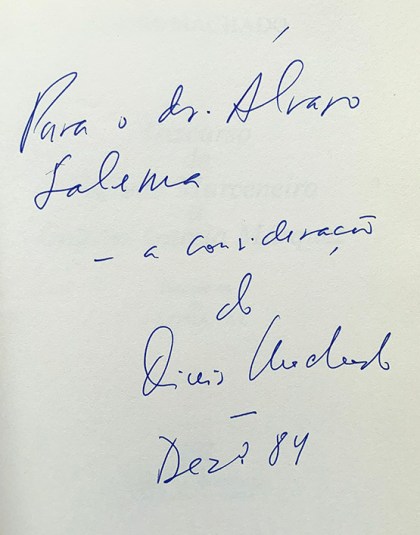 Para o dr. Álvaro
Salema
– a consideração
do
Dinis Machado
–
Dezº 84